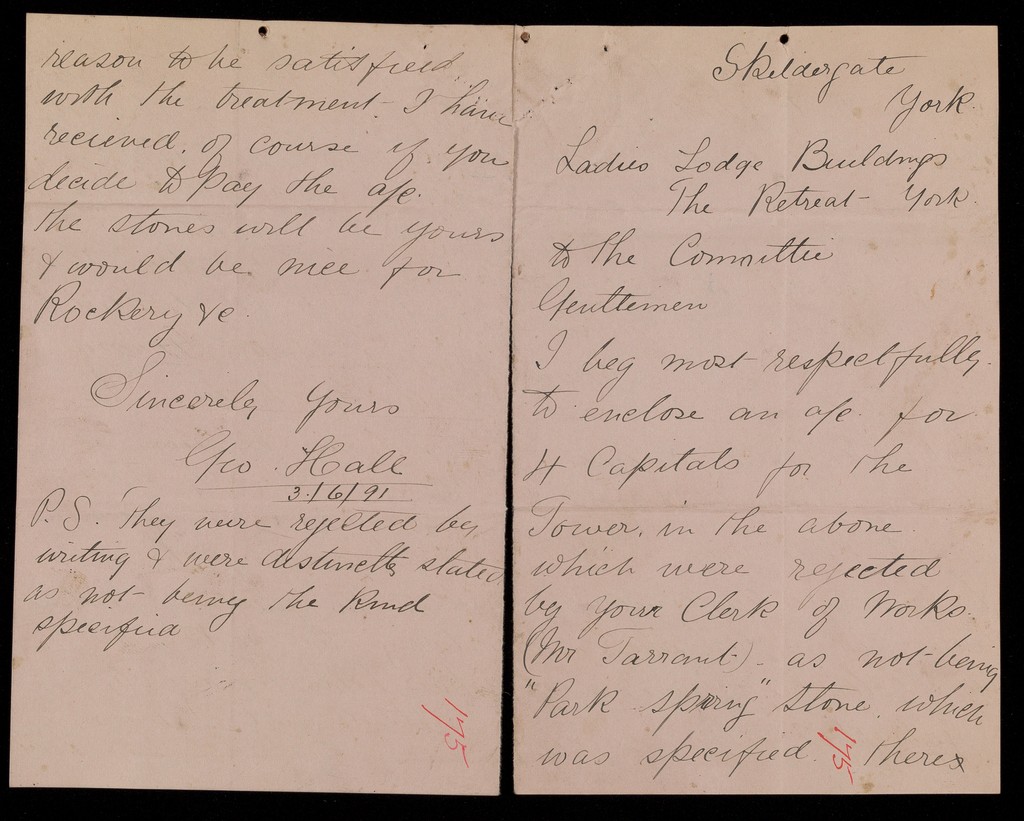 Skeldergate
York.
Ladies Lodge Buildings
The Retreat York.
to the Committie
Gentlemen
I beg most respectfully.
to enclose an a/c. for
4 Capitals for the
Tower, in the above
which were rejected
by your Clerk of Works.
(Mr Tarrant) - as not being
"Park spring" stone. which
was specified.
175
reason to be satisfied
with the treatment - I have
recieved. of course if you
decide to pay the a/c.
the stones will be yours
& would be nice for
Rockery &c.
Sincerely Yours
Geo. Hall
3/6/91
P.S. They were rejected by
writing & were distinctly stated
as not being the kind
specified
175